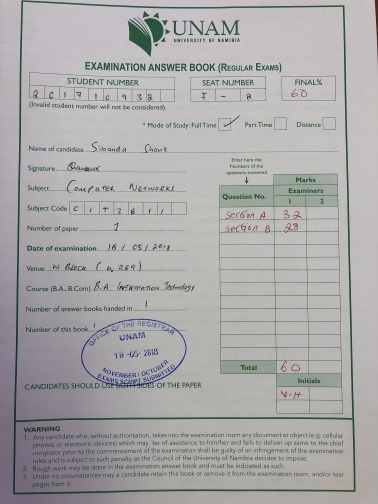 UNAM
UNIVERSITY OF NAMIBIA
EXAMINATION ANSWER BOOK (REGULAR EXAMS)
STUDENT NUMBER
SEAT NUMBER
FINAL%
201710932
I - 8
60
(Invalid student number will not be considered)
* Mode of Study: Full Time ✓ Part Time Distance
Name of candidate Sibanda Shane
Signature
Subject Computer Networks
Subject Code CIT3611
Number of paper 1
Date of examination 16/05/2018
Venue N Block (W269)
Course (B.A., B.Com) B.A Information Technology
Number of answer books handed in 1
Number of this book 1
Enter here the
Numbers of the
questions answered
Question No.
Marks
Examiners
1 2
section A 32
section B 28
Total 60
Initials
OFFICE OF THE REGISTRAR
UNAM
18-05-2018
NOVEMBER / OCTOBER
EXAMS SCRIPT SUBMITTED
CANDIDATES SHOULD USE BOTH SIDES OF THE PAPER
WARNING
1. Any candidate who, without authorisation, takes into the examination room any document or object (e.g. cellular
phones or electronic devices) which may be of assistance to him/her and fails to deliver up same to the chief
invigilator prior to the commencement of the examination shall be guilty of an infringement of the examination
rules and is subject to such penalty as the Council of the University of Namibia decides to impose.
2. Rough work may be done in the examination answer book and must be indicated as such.
3. Under no circumstances may a candidate retain this book or remove it from the examination room, and/or tear
pages from it.